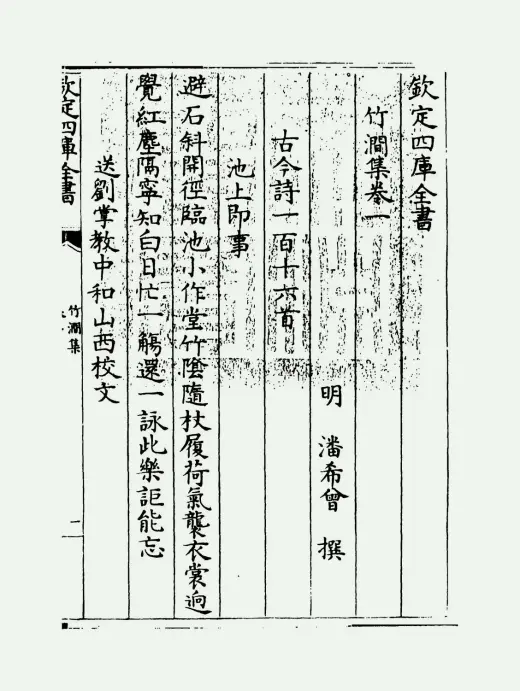 欽定四庫全書
竹澗集卷一
明 潘希曾 撰
古今詩一百十六首
池上即事
避石斜開徑臨池小作堂竹陰隨杖履荷氣襲衣裳逈
覺紅塵隔寧知白日忙一觴還一詠此樂詎能忘
送劉掌教中和山西校文
欽定四庫全書
竹澗集
一